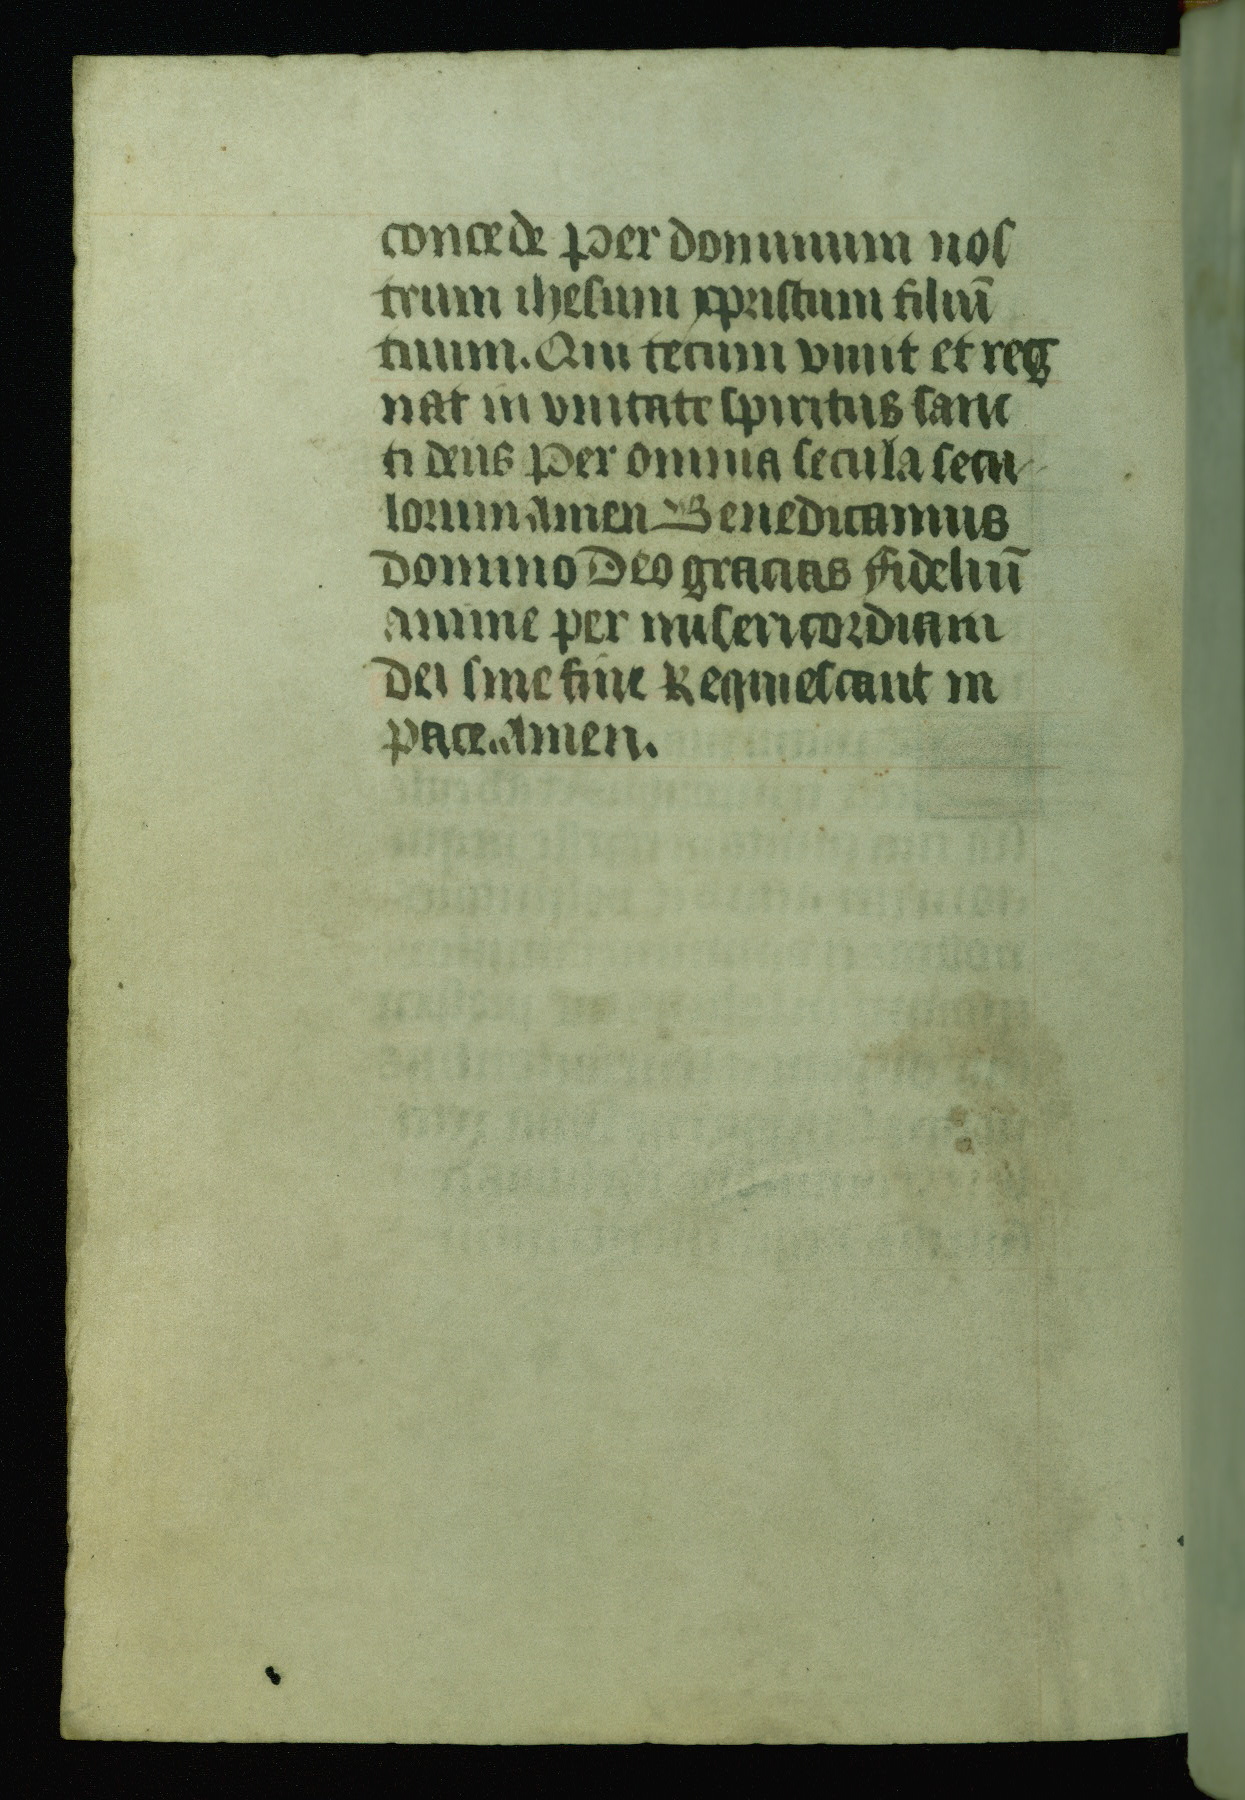 concede Per dominum nos
trum ihesum xpristum filiū
tuum. Qui tecum viuit et reg
nat in vnitate spiritus sanc
ti deus Per omnia secula secu
lorum Amen Benedicamus
domino Deo gracias Fideliū
anime per misericordiam
dei sine fine Requiescant in
pace. Amen.